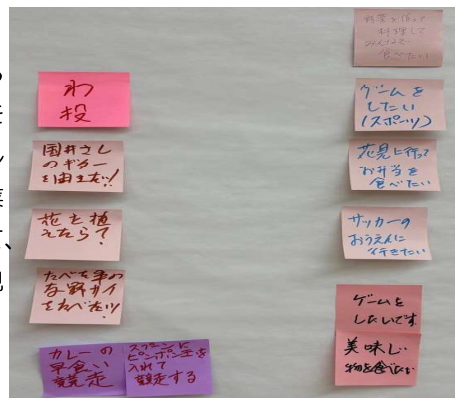 わ
投
国井さん
のギター
を
花を植
えたら？
カレーの
早食い
競走
ピンポン玉を
入れて
競走する
野菜を作って
料理して
みんなで
食べたい
ゲームを
したい
(スポーツ)
花見に行って
お弁当を
食べたい
サッカーの
おうえんに
行きたい
ゲームを
したいです
美味しい
物を食べたい